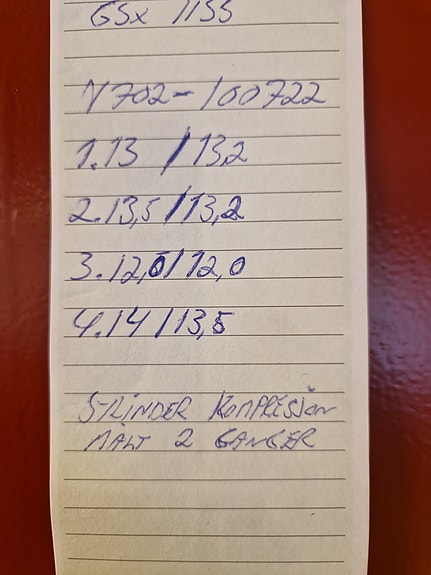 GSX 1135
V702-100722
1.13 / 13,2
2.13,5 / 13,2
3.12,0 / 12,0
4.14 / 13,5
SYLINDER KOMPRESJON
MÅLT 2 GANGER